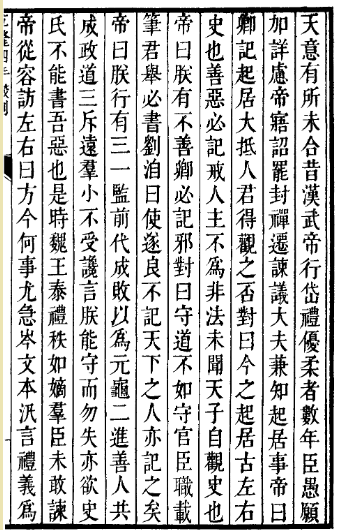 天意有所未合昔漢武帝行岱禮優柔者數年臣愚願
加詳慮帝寤詔罷封禪遷諫議大夫兼知起居事帝曰
卿記起居大抵人君得觀之否對曰今之起居古左右
史也善惡必記戒人主不爲非法未聞天子自觀史也
帝曰朕有不善卿必記邪對曰守道不如守官臣職載
筆君舉必書劉洎曰使遂良不記天下之人亦記之矣
帝曰朕行有三一監前代成敗以爲元龜二進善人共
成政道三斥遠羣小不受讒言朕能守而勿失亦欲史
氏不能書吾惡也是時魏王泰禮秩如嫡羣臣未敢諫
帝從容訪左右曰方今何事尤急岑文本汎言禮義爲